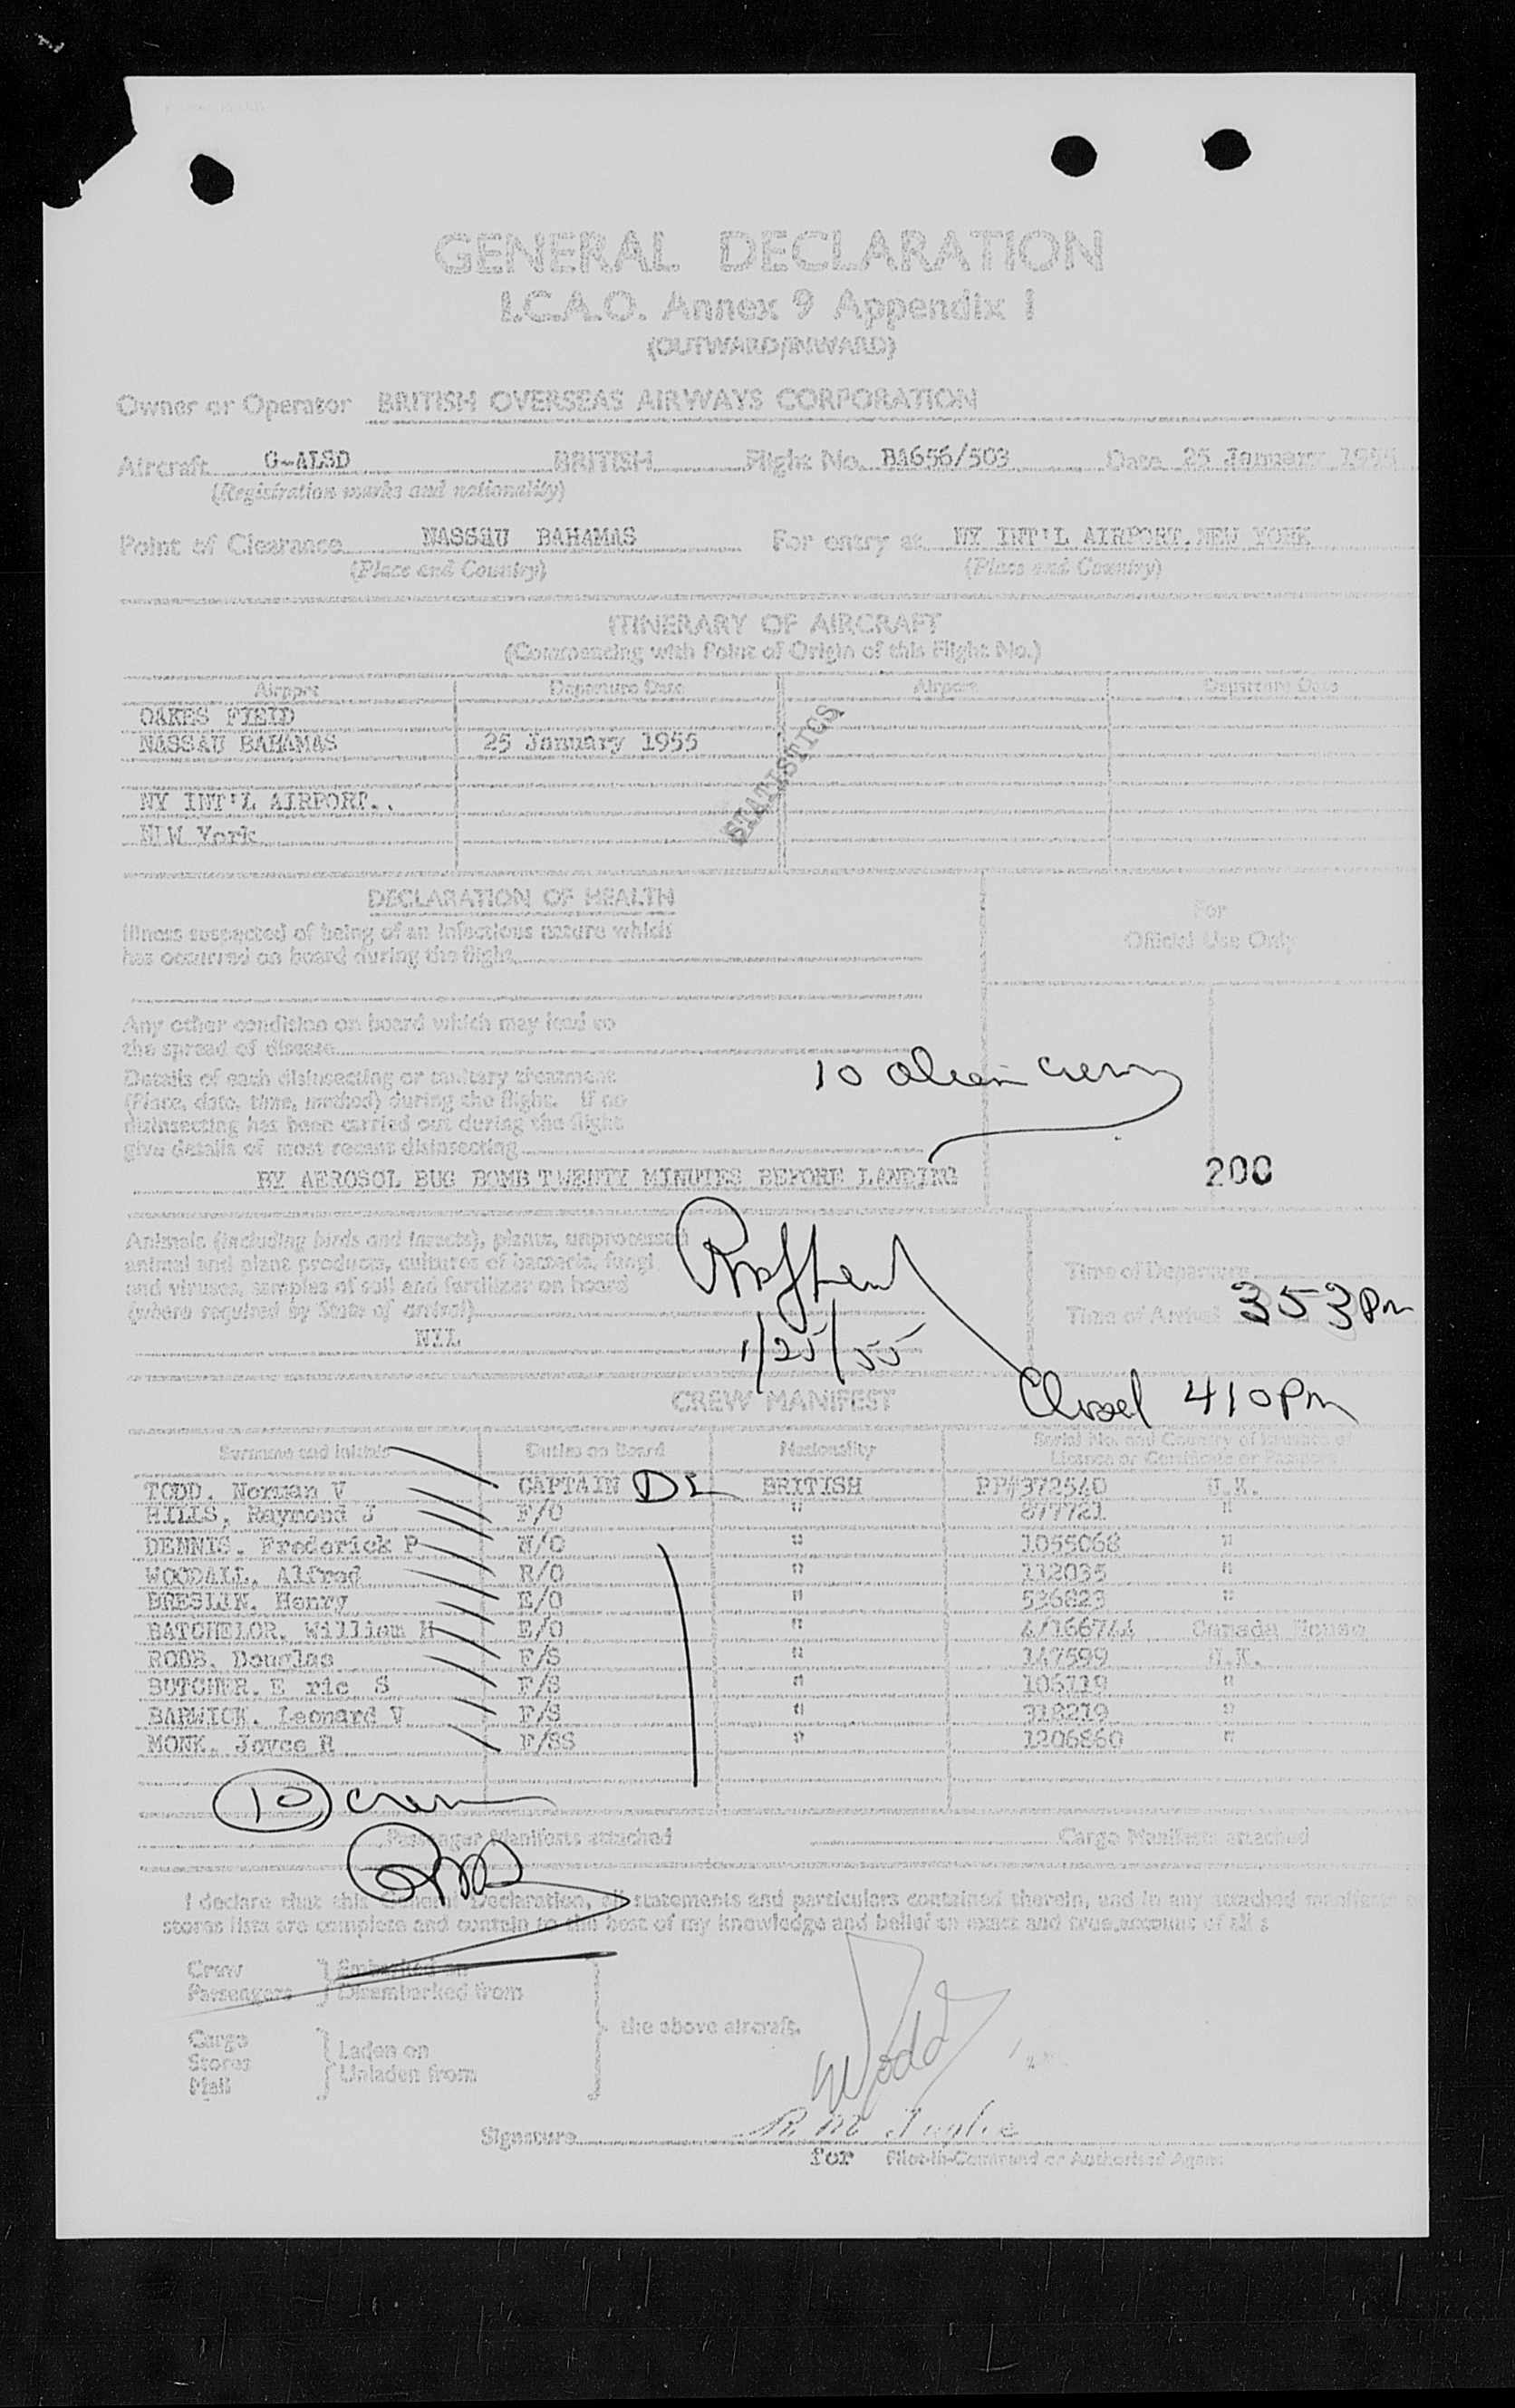 GENERAL DECLARATION
I.C.A.O. Annex 9 Appendix 1
(OUTWARD/INWARD)
Owner or Operator BRITISH OVERSEAS AIRWAYS CORPORATION
Aircraft G-ALSD BRITISH Flight No. BA656/503 Date 25 January 1955
(Registration marks and nationality)
Point of Clearance NASSAU BAHAMAS For entry at NY INT'L AIRPORT, NEW YORK
(Place and Country) (Place and Country)
ITINERARY OF AIRCRAFT
(Commencing with Point of Origin of this Flight No.)
Airport Departure Date Airport Departure Date
OAKES FIELD
NASSAU BAHAMAS 25 January 1955
STATISTICS
NY INT'L AIRPORT..
NEW York
DECLARATION OF HEALTH
For
Official Use Only
Illness suspected of being of an infectious nature which
has occurred on board during the flight
Any other condition on board which may lead to
the spread of disease
Details of each disinsecting or sanitary treatment
(Place, date, time, method) during the flight. If no
disinsecting has been carried out during the flight
give details of most recent disinsecting
10 alien crew
BY AEROSOL BUG BOMB TWENTY MINUTES BEFORE LANDING
200
Animals (including birds and insects), plants, unprocessed
animal and plant products, cultures of bacteria, fungi
and viruses, samples of soil and fertilizer on board
(where required by State of arrival)
NIL
1/25/55
Time of Departure
Time of Arrival 353 Pm
Closed 410 Pm
CREW MANIFEST
Surname and Initials Duties on Board Nationality Serial No. and Country of Issuance of
Licence or Certificate or Passport
TODD. Norman V CAPTAIN DL BRITISH PP#372540 U.K.
HILLS, Raymond J F/O " 877721 "
DENNIS. Frederick P N/O " 1055068 "
WOODALL, Alfred R/O " 112035 "
BRESLIN. Henry E/O " 536823 "
BATCHELOR. William H E/O " 4/166744 Canada House
RODB. Douglas F/S " 147599 U.K.
BUTCHER. E ric S F/S " 106719 "
BARWICK. Leonard V F/S " 318219 "
MONK. Joyce R F/SS " 1206860 "
10 crew
Passenger Manifests attached Cargo Manifests attached
I declare that this General Declaration, all statements and particulars contained therein, and in any attached manifests
stores lists are complete and contain to the best of my knowledge and belief an exact and true account of all :
Crew Embarked on
Passengers Disembarked from
the above aircraft.
Cargo
Stores Laden on
Mail Unladen from
Signature
for Pilot-in-Command or Authorised Agent